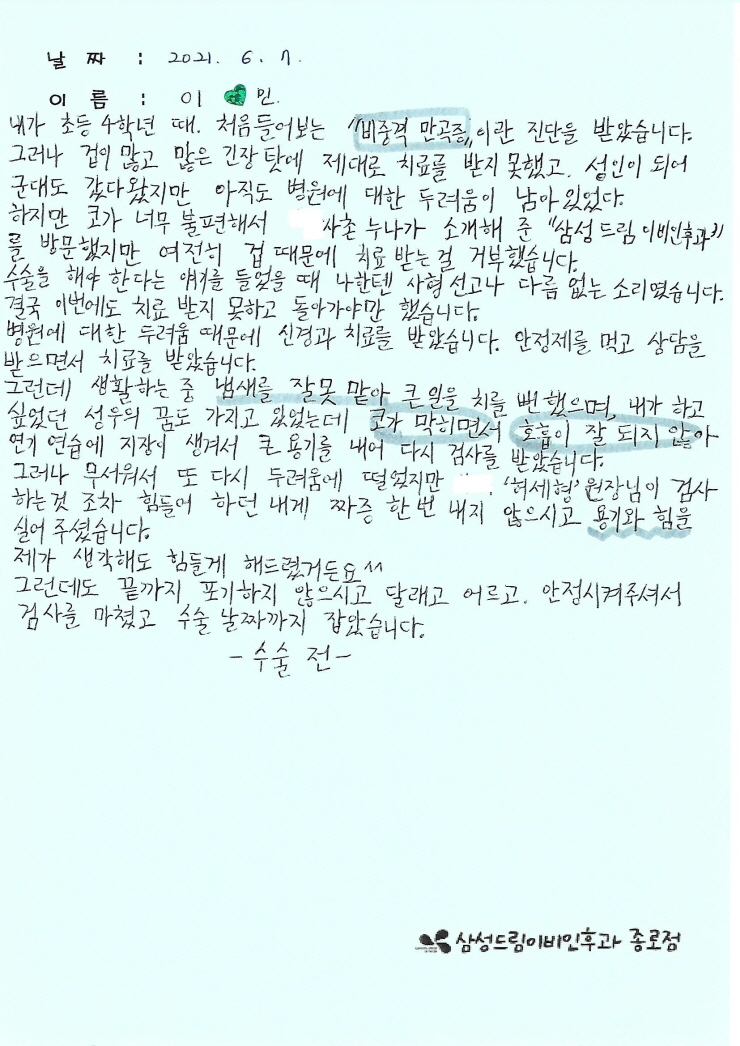 날 짜 : 2021. 6. 7.
이 름 : 이 민.
내가 초등 4학년 때. 처음들어보는 "비중격 만곡증"이란 진단을 받았습니다.
그러나 겁이 많고 많은 긴장 탓에 제대로 치료를 받지 못했고. 성인이 되어
군대도 갔다왔지만 아직도 병원에 대한 두려움이 남아있었다.
하지만 코가 너무 불편해서 사촌 누나가 소개해 준 "삼성드림이비인후과"
를 방문했지만 여전히 겁 때문에 치료 받는걸 거부했습니다.
수술을 해야 한다는 얘기를 들었을 때 나한텐 사형선고나 다름 없는 소리였습니다.
결국 이번에도 치료 받지 못하고 돌아가야만 했습니다.
병원에 대한 두려움 때문에 신경과 치료를 받았습니다. 안정제를 먹고 상담을
받으면서 치료를 받았습니다.
그런데 생활하는 중 냄새를 잘못 맡아 큰일을 치를 뻔 했으며, 내가 하고
싶었던 성우의 꿈도 가지고 있었는데 코가 막히면서 호흡이 잘 되지 않아
연기 연습에 지장이 생겨서 큰 용기를 내어 다시 검사를 받았습니다.
그러나 무서워서 또 다시 두려움에 떨었지만 '허세형' 원장님이 검사
하는것 조차 힘들어 하던 내게 짜증 한번 내지 않으시고 용기와 힘을
실어 주셨습니다.
제가 생각해도 힘들게 해드렸거든요^^
그런데도 끝까지 포기하지 않으시고 달래고 어르고. 안정시켜주셔서
검사를 마쳤고 수술 날짜까지 잡았습니다.
-수술 전-
삼성드림이비인후과 종로점